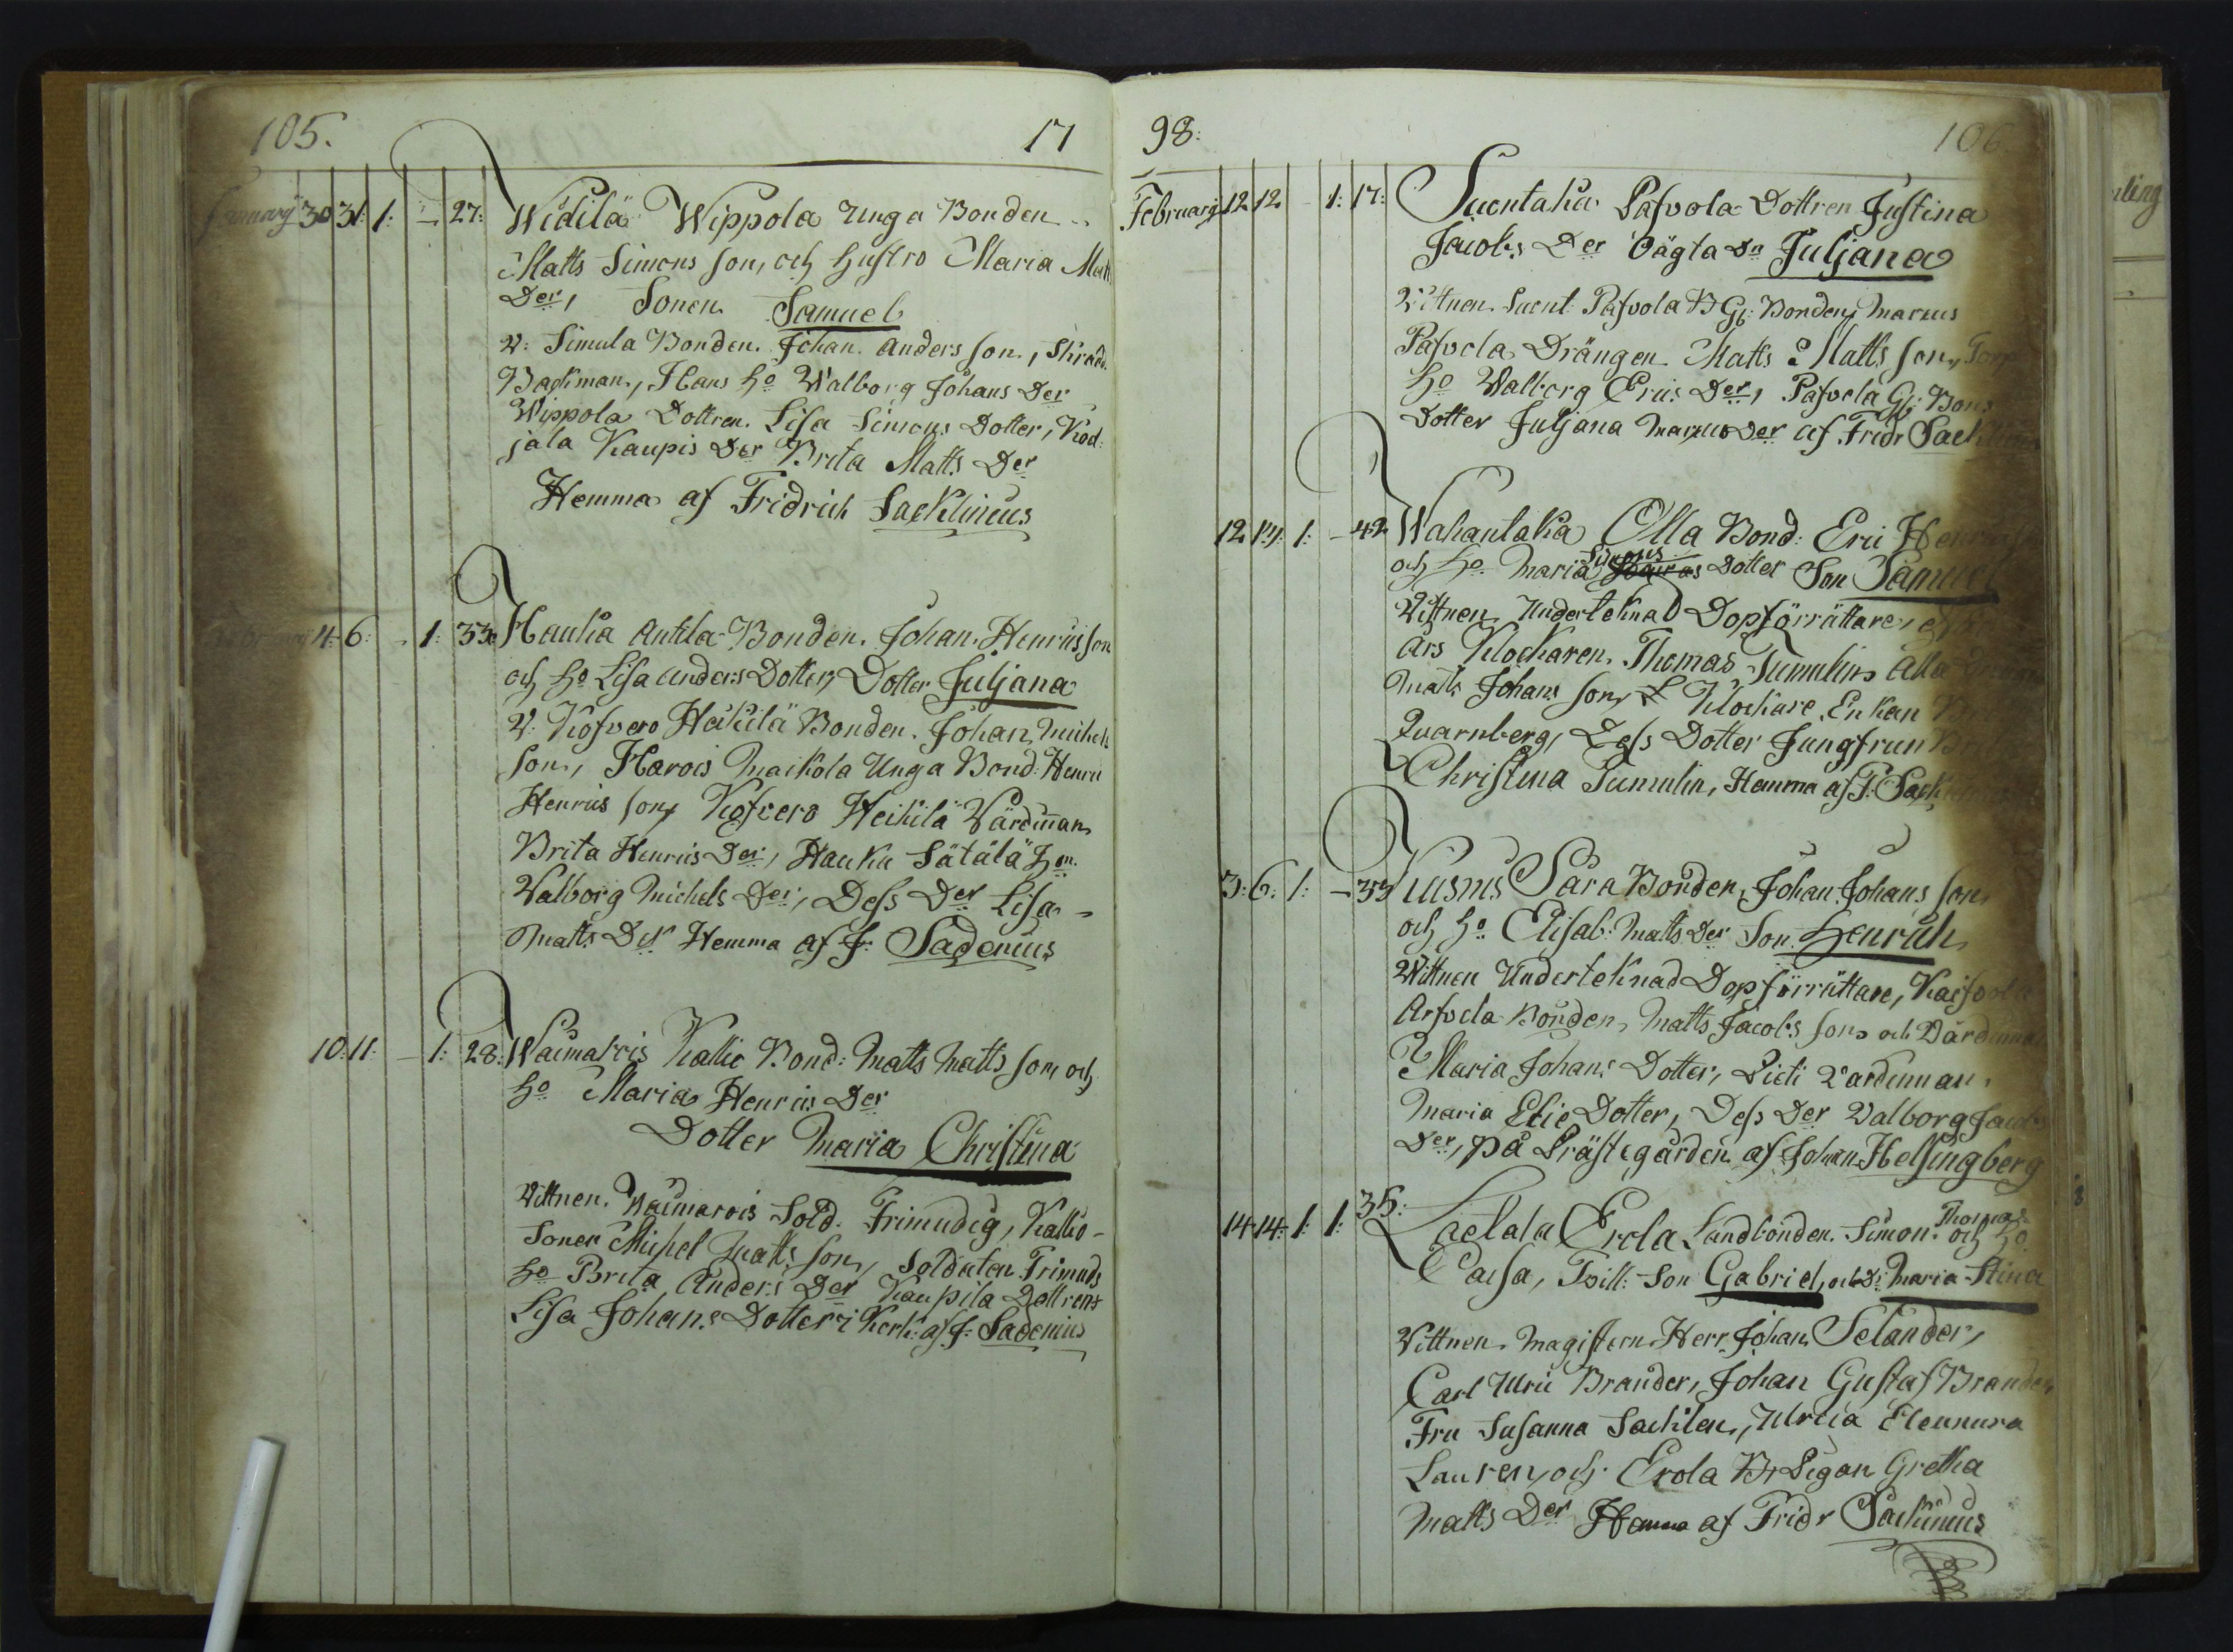 105. 17
January 30 31 1: - 27: Widilä Wippola Unga Bonden
Matts Simons son, och Hustro Maria Matts
Der, Sonen Samuel
V: Simula Bonden. Johan Anders son, Skradd.
Backman, Hans Ho Walborg Johans Der
Wippola Dottren. Lisa Simons Dotter, Kod-
jala Kaupis Der Brita Matts Der
Hemma af Fridrich Sacklinius
4 6: - 1: 33 Hauka Antila Bonden. Johan Henrics son
och Ho Lisa Anders Dotter, Dotter Juljana
V: Kofvero Heikilä Bonden. Johan Michels
son, Harois Maikola Unga Bond: Henric
Henrics son, Kofvero Heikilä Värdinnan
Brita Henrics Der, Hauka Sätälä Hon.
Walborg Michels Der, Dess Der Lisa
Matts Der Hemma af J: Sadenius
10: 11: - 1: 28: Waimarois Kallio Bond: Matts Matts son och
Ho Maria Henrics Der
Dotter Maria Christina
Vittnen. Waimarois Sold. Frimodig, Kallio
Sonen Michel Matts son, Soldaten Frimods
Ho Brita Anders Der Kaupila Dottren
Lisa Johans Dotter i Kyrk: af J: Sadenius
98: 106.
February 12 12 1: 17: Suontaka Pasvola Dottren Justina
Jacobs Der Oägta Dr Juljana
Vittnen. Suont. Pasvola B Gl: Bonden Marcus
Pasvola Drängen Matts Matts son, Torp
Ho Walborg Erics Der, Pasvola Gl: Bons
Dotter Juljana Marcus Der af Fridr Sacklinius
12 14: 1: - 42 Wahantaka Olla Bond: Eric Henrics
och Ho Maria Simons Dotter Son Samuel
Vittnen Undertecknad Dopförrättare,
Ars Klockaren. Thomas Tummelin, Alla
Matts Johans son, Klockare Enkan
Quarnberg, Dess Dotter Jungfrun
Christina Tummlin, Hemma af F: Sack
3: 6: 1: - 33 Kusnis Sara Bonden, Johan Johans son
och Ho Elisab: Matts Der Son Henrich
Wittnen Undertecknad Dopförrättare, Kaisvola
Arfvola Bonden, Matts Jacobs son och Värdinnan
Maria Johans Dotter, Pieti Värdinnan.
Maria Elie Dotter, Dess Der Valborg Jacobs
Der, På Prästegården af Johan Helsingberg
14 14: 1: 1: 35: Laelala Erola Landbonden. Simon Thomas. och Ho
Caisa, Tvill: Son Gabriel, och Dr Maria Stina
Vittnen. Magistern Herr Johan Selander,
Carl Ulric Brander, Johan Gustaf Brander
Fru Susanna Sacklen, Ulrica Eleonora
Lauren, och Erola B. Pigan Gretha
Matts Der Hemma af Fridr Sacklinius